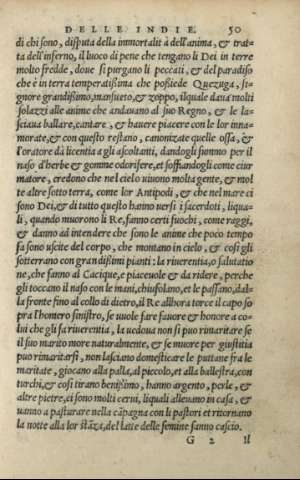 DELLE INDIE. 50
di chi sono, disputa della immortalit à dell'anima, & trat=
ta dell'inferno, il luoco di pene che tengano li Dei in terre
molto fredde, doue si purgano li peccati, & del paradiso
che è in terra temperatißima che poßiede Quezuga, si=
gnore grandißimo, mansueto, & zoppo, ilquale daua molti
solazzi alle anime che andauano al suo Regno, & le la=
sciaua ballare, cantare, & hauere piacere con le lor inna=
morate, & con questo restano, canonizate quelle ossa, &
l'oratore dà licentia a gli ascoltanti, dandogli fiommo per il
naso d'herbe & gomme odorifere, et soffiandogli come ciur
matore, credono che nel cielo uiuono molta gente, & mol
te altre sotto terra, come lor Antipodi, & che nel mare ci
sono Dei, & di tutto questo hanno uersi i sacerdoti, liqua=
li, quando muorono li Re, fanno certi fuochi, come raggi,
& danno ad intendere che sono le anime che poco tempo
fa sono uscite del corpo, che montano in cielo, & cosi gli
sotterrano con grandißimi pianti: la riuerentia, o salutatio
ne, che fanno al Cacique, e piaceuole & da ridere, perche
gli toccano il naso con le mani, chiufolano, et le passano, dal=
la fronte fino al collo di dietro, il Re allhora torce il capo so
pra l'homero sinistro, se uuole fare fauore & honore a co=
lui che gli fa riuerentia, la uedoua non si puo rimaritare se
il suo marito more naturalmente, & se muore per giustitia
puo rimaritarsi, non lasciano domesticare le puttane fra le
maritate, giocano alla palla, al piccolo, et alla ballestra, con
turchi, & cosi tirano benißimo, hanno argento, perle, &
altre pietre, ci sono molti cerui, liquali alleuano in casa, &
uanno a pasturare nella cãpagna con li pastori et ritornano
la notte alla lor stãza, del latte delle femine fanno cascio.
G 2 Il